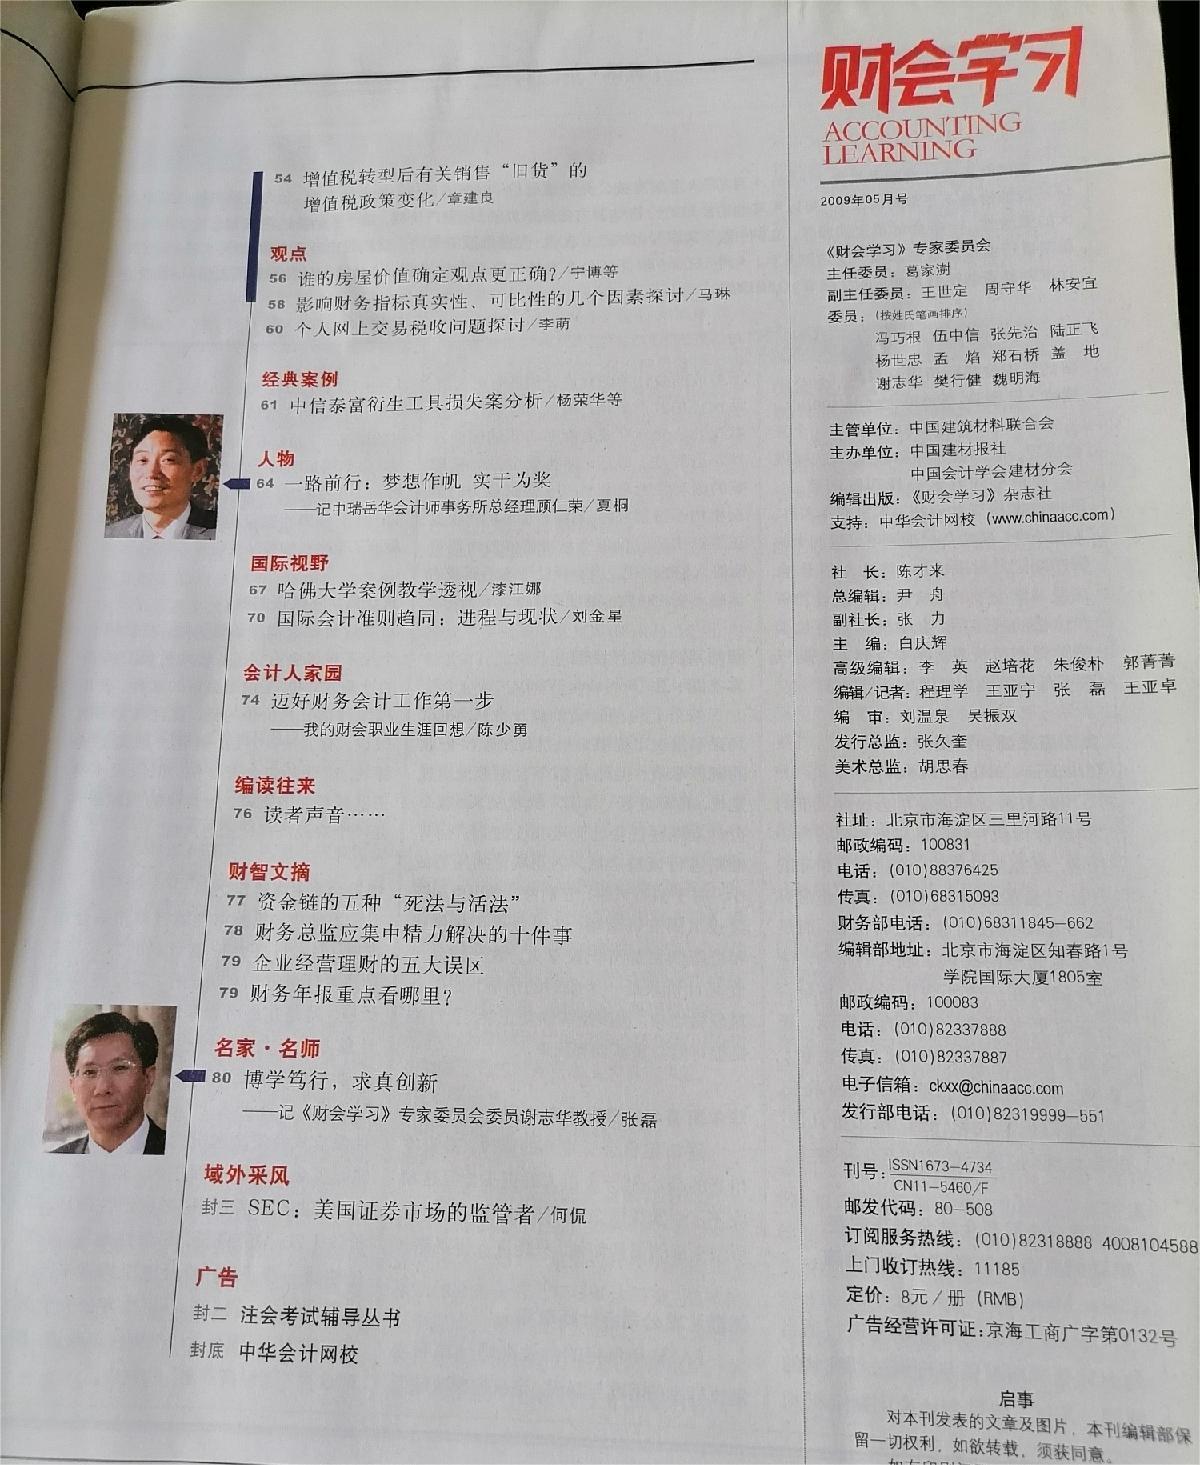 54 增值税转型后有关销售“旧货”的
增值税政策变化/章建良
观点
56 谁的房屋价值确定观点更正确?/宁博等
58 影响财务指标真实性、可比性的几个因素探讨/马琳
60 个人网上交易税收问题探讨/李萌
经典案例
61 中信泰富衍生工具损失案分析/杨荣华等
人物
64 一路前行：梦想作帆 实干为桨
——记中瑞岳华会计师事务所总经理顾仁荣/夏桐
国际视野
67 哈佛大学案例教学透视/漆江娜
70 国际会计准则趋同：进程与现状/刘金星
会计人家园
74 迈好财务会计工作第一步
——我的财会职业生涯回想/陈少勇
编读往来
76 读者声音……
财智文摘
77 资金链的五种“死法与活法”
78 财务总监应集中精力解决的十件事
79 企业经营理财的五大误区
79 财务年报重点看哪里?
名家·名师
80 博学笃行，求真创新
——记《财会学习》专家委员会委员谢志华教授/张磊
域外采风
封三 SEC：美国证券市场的监管者/何侃
广告
封二 注会考试辅导丛书
封底 中华会计网校
财会学习
ACCOUNTING
LEARNING
2009年05月号
《财会学习》专家委员会
主任委员：葛家澍
副主任委员：王世定 周守华 林安宜
委员：(按姓氏笔画排序)
冯巧根 伍中信 张先治 陆正飞
杨世忠 孟焰 郑石桥 盖地
谢志华 樊行健 魏明海
主管单位：中国建筑材料联合会
主办单位：中国建材报社
中国会计学会建材分会
编辑出版：《财会学习》杂志社
支持：中华会计网校 (www.chinaacc.com)
社 长：陈才来
总编辑：尹 舟
副社长：张 力
主 编：白庆辉
高级编辑：李 英 赵培花 朱俊朴 郭菁菁
编辑/记者：程理学 王亚宁 张 磊 王亚卓
编 审：刘温泉 吴振双
发行总监：张久奎
美术总监：胡思春
社址：北京市海淀区三里河路11号
邮政编码：100831
电话：(010)88376425
传真：(010)68315093
财务部电话：(010)68311845—662
编辑部地址：北京市海淀区知春路1号
学院国际大厦1805室
邮政编码：100083
电话：(010)82337888
传真：(010)82337887
电子信箱：ckxx@chinaacc.com
发行部电话：(010)82319999—551
刊号：ISSN1673—4734
CN11—5460/F
邮发代码：80—508
订阅服务热线：(010)82318888 4008104588
上门收订热线：11185
定价：8元／册 (RMB)
广告经营许可证：京海工商广字第0132号
启事
对本刊发表的文章及图片，本刊编辑部保
留一切权利，如欲转载，须获同意。